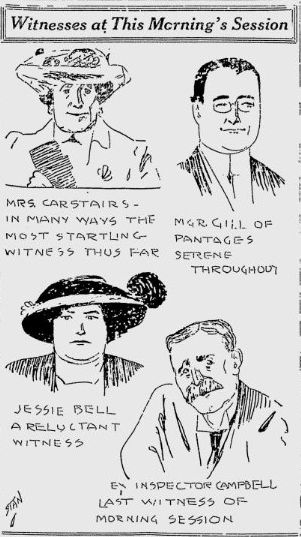 Witnesses at This Morning's Session
MRS. CARSTAIRS -
IN MANY WAYS THE
MOST STARTLING
WITNESS THUS FAR
MGR. GILL OF
PANTAGES
SERENE
THROUGHOUT
JESSIE BELL
A RELUCTANT
WITNESS
EX INSPECTOR CAMPBELL
LAST WITNESS OF
MORNING SESSION
STAN